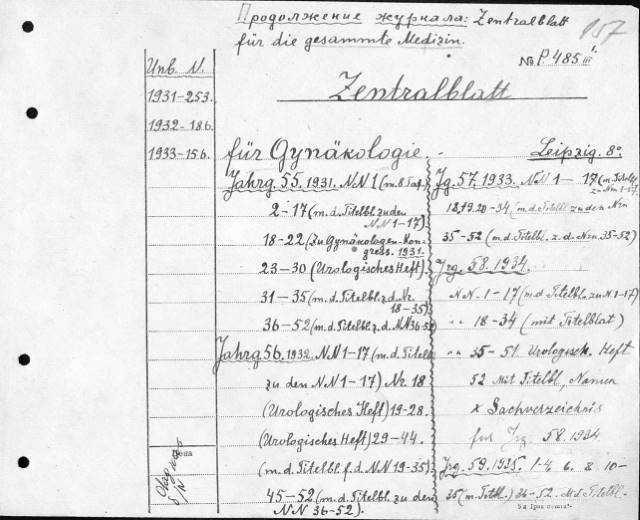 Продолжение журнала: Zentralblatt
für die gesammte Medizin.
157
№ P 485 III
Zentralblatt
für Gynäkologie.
Leipzig. 8°
Unb. N.
1931-253.
1932-186.
1933-156.
Jahrg. 55. 1931. N.N 1 (m. 8 Taf.)
2-17 (m. d. Titelbl. zu den
N N 1-17)
18-22 (Zu Gynäkologen-Kon-
gress. 1931.
23-30 (Urologisches Heft)
31-35 (m. d. Titelbl. z. d. Nr.
18-35)
36-52 (m. d. Titelbl. z. d. N.N 36-52
Jahrg 56. 1932. N.N 1-17 (m. d. Titelb
zu den N N 1-17) Nr. 18
(Urologisches Heft) 19-28.
(Urologisches Heft) 29-44.
(m. d. Titelbl. f. d. N N 19-35)
45-52 (m. d. Titelbl. zu den
N N 36-52).
Jg. 57. 1933. N.N 1-17 (m. Titelbl.
zu Nrn 1-17.
18, 19. 20-34 (m. d. Titelbl. zu den Nrn
35-52 (m. d. Titelbl. z. d. Nrn. 35-52)
Jrg. 58. 1934.
N.N. 1-17 (m. d. Titelbl. zu N 1-17)
" 18-34 (mit Titelblat)
" 35-51. Urologisch. Heft
52 mit Titelbl., Namen
x Sachverzeichnis
fur Jrg. 58. 1934.
Jrg. 59. 1935. 1-4, 6, 8, 10-
35 (m. Titelbl.) 36-52. M.d. Titelbl.